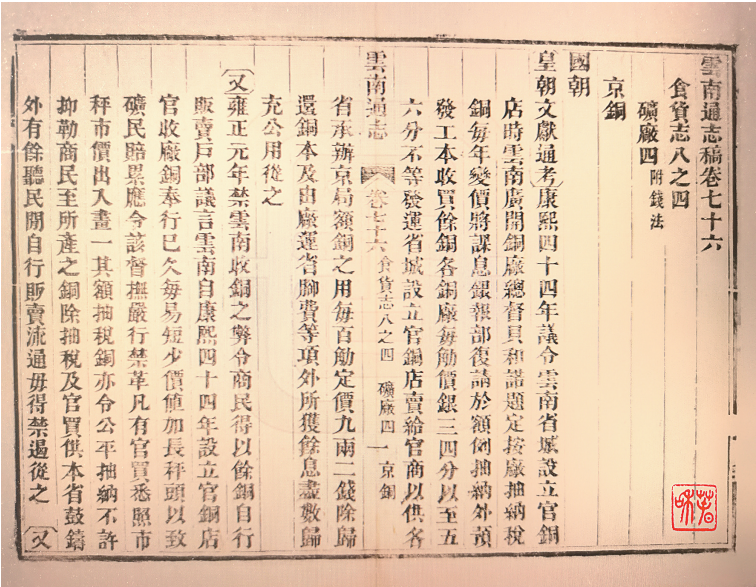 雲南通志稿卷七十六
食貨志八之四
礦廠四附錢法
京銅
國朝
皇朝文獻通考康熙四十四年議令雲南省城設立官銅
店時雲南廣開銅廠總督貝和諾題定按廠抽納稅
銅每年變價將課息銀報部復請於額例抽納外預
發工本收買餘銅各銅廠每觔價銀三四分以至五
六分不等發運省城設立官銅店賣給官商以供各
雲南通志 卷七十六 食貨志八之四 礦廠四 一 京銅
省承辦京局額銅之用每百觔定價九兩二錢除歸
還銅本及由廠運省腳費等項外所獲餘息盡數歸
充公用從之
又雍正元年禁雲南收銅之弊令商民得以餘銅自行
販賣戶部議言雲南自康熙四十四年設立官銅店
官收廠銅奉行已久每易短少價值加長秤頭以致
礦民賠累應令該督撫嚴行禁革凡有官買悉照市
秤市價出入畫一其額抽稅銅亦令公平抽納不許
抑勒商民至所產之銅除抽稅及官買供本省鼓鑄
外有餘聽民間自行販賣流通毋得禁遏從之 又